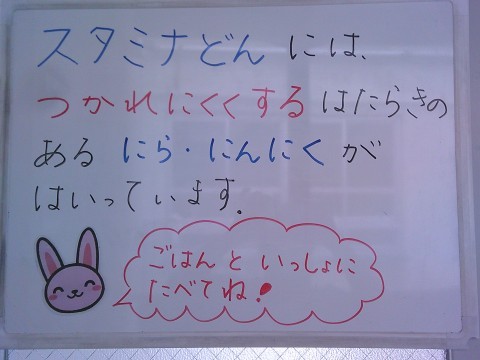 スタミナどん には、
つかれにくくする はたらきの
ある にら・にんにく が
はいっています。
ごはん と いっしょに
たべてね!